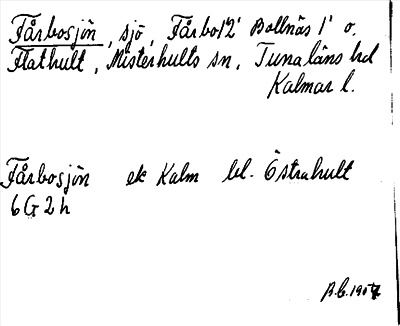 Fårbosjön, sjö, Fårbo 12' Bollnäs 1' o.
Flathult, Misterhults sn, Tunaläns hd
Kalmar l.
Fårbosjön ek Kalm bl. Östrahult
6G 2h